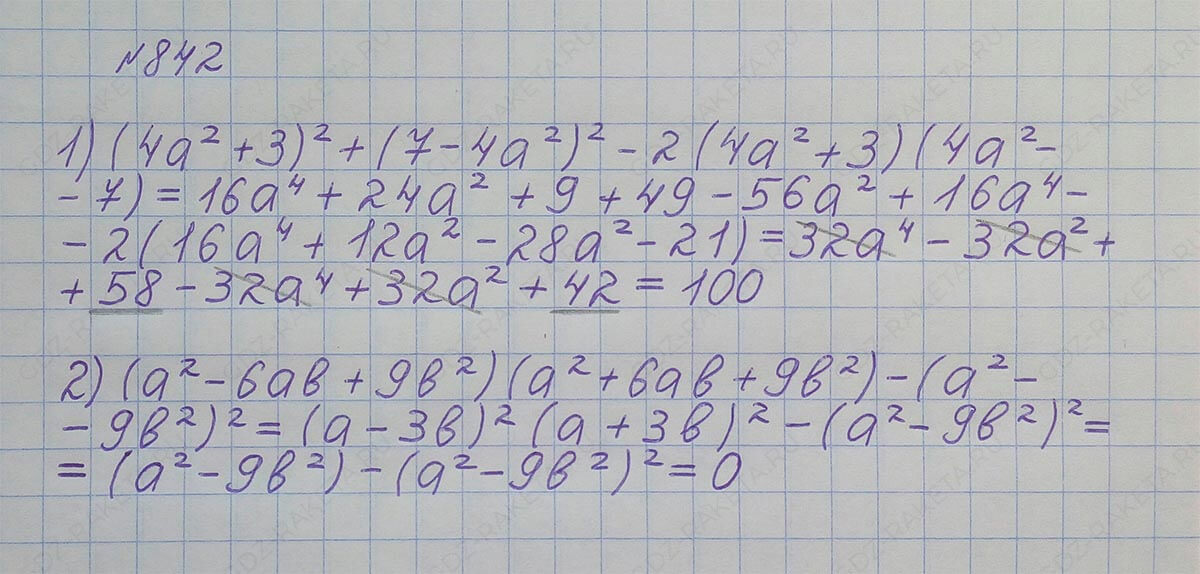 №842
1) (4a² + 3)² + (7 - 4a²)² - 2 (4a² + 3) (4a² -
- 7) = 16a⁴ + 24a² + 9 + 49 - 56a² + 16a⁴ -
- 2 (16a⁴ + 12a² - 28a² - 21) = 32a⁴ - 32a² +
+ 58 - 32a⁴ + 32a² + 42 = 100
2) (a² - 6ab + 9b²) (a² + 6ab + 9b²) - (a² -
- 9b²)² = (a - 3b)² (a + 3b)² - (a² - 9b²)² =
= (a² - 9b²) - (a² - 9b²)² = 0